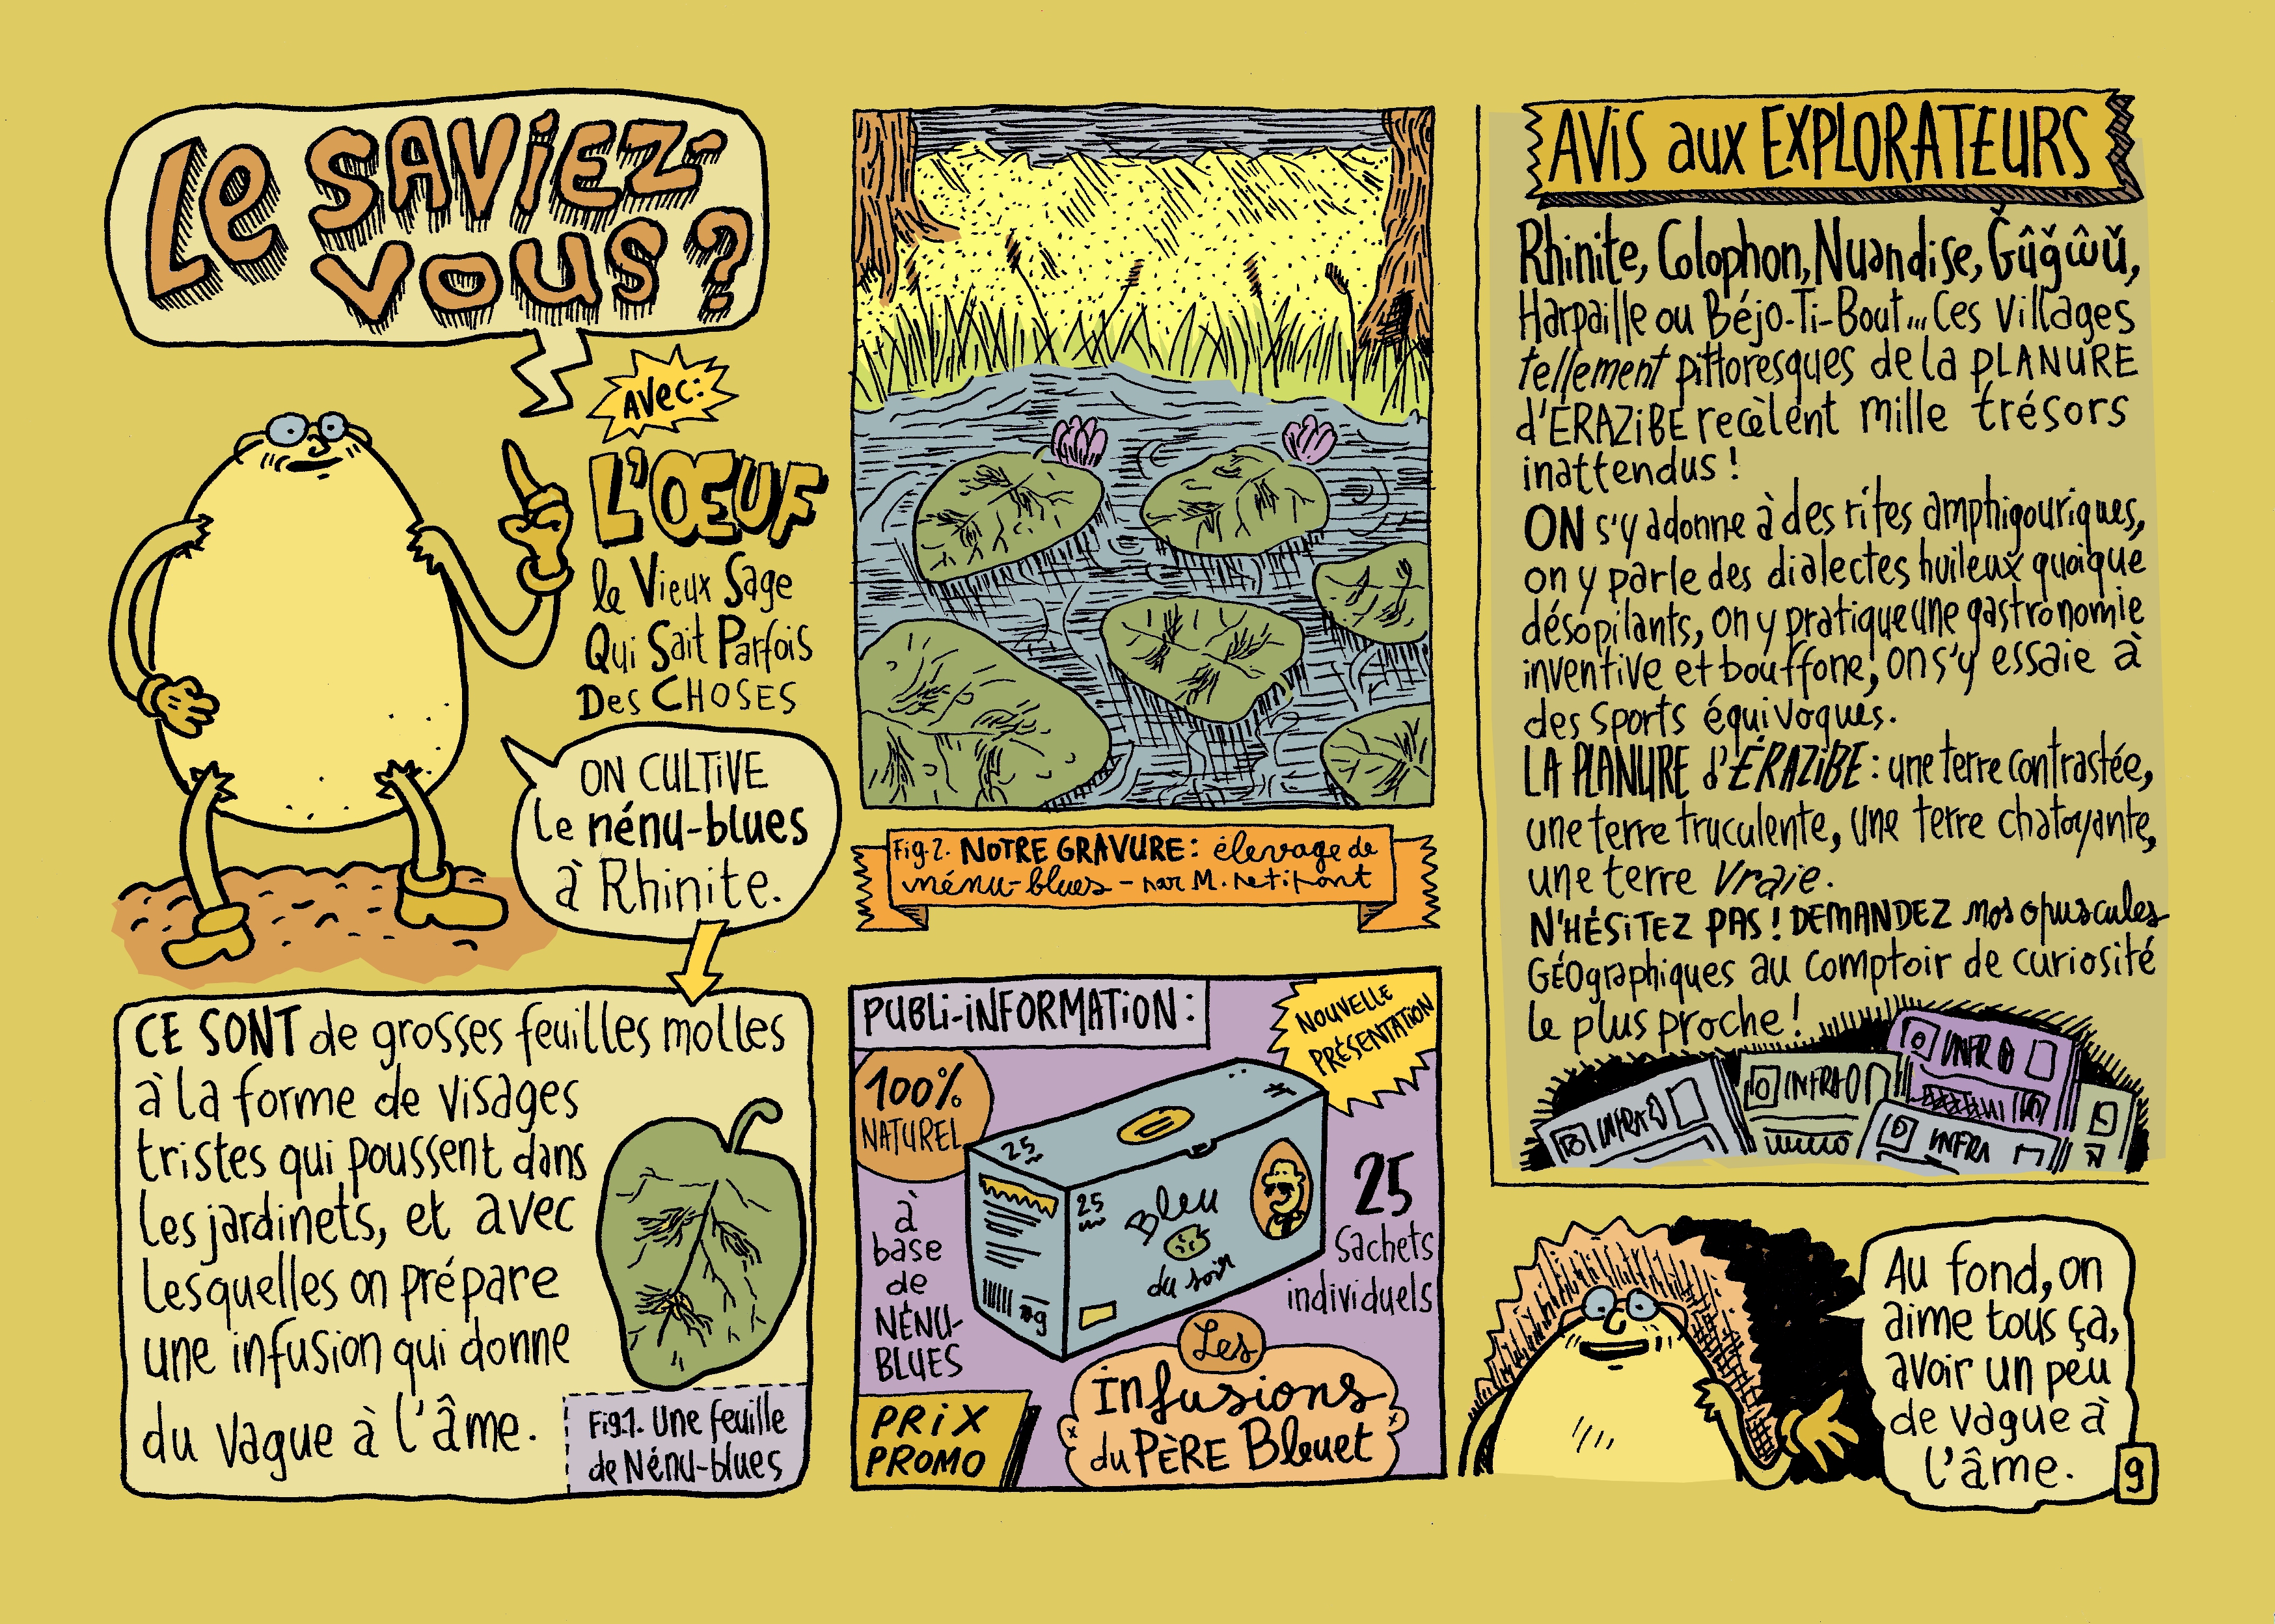 Le SAViEZ-
VOUS ?
AVec:
L'ŒUF
le Vieux Sage
Qui Sait Parfois
Des CHOSES
ON CULTiVE
Le nénu-blues
à Rhinite.
CE SONT de grosses feuilles molles
à la forme de visages
tristes qui poussent dans
les jardinets, et avec
lesquelles on prépare
une infusion qui donne
du vague à l'âme.
Fig.1. Une feuille
de Nénu-blues
Fig.2. NOTRE GRAVURE: élevage de
nénu-blues - par M. Petitpont
PUBLi-iNFORMATiON:
NOUVELLE
PRÉSENTATiON
100%
NATUREL
à
base
de
NÉNU-
BLUES
25
25
Bleu
du soir
25
Sachets
individuels
PRiX
PROMO
Les
Infusions
du PÈRE Bleuet
AViS aux EXPLORATEURS
Rhinite, Colophon, Nuandise, Ğûğŵŭ,
Harpaille ou Béjo-Ti-Bout... Ces villages
tellement pittoresques de la PLANURE
d'ÉRAZiBE recèlent mille trésors
inattendus !
ON s'y adonne à des rites amphigouriques,
on y parle des dialectes huileux quoique
désopilants, on y pratique une gastronomie
inventive et bouffone, on s'y essaie à
des sports équivoques.
LA PLANURE d'ÉRAZiBE : une terre contrastée,
une terre truculente, une terre chatoyante,
une terre Vraie.
N'HÉSiTEZ PAS ! DEMANDEZ nos opuscules
GÉOgraphiques au comptoir de curiosité
le plus proche !
INFRA
INFRA
INFRA
INFRA
Au fond, on
aime tous ça,
avoir un peu
de vague à
l'âme.
9